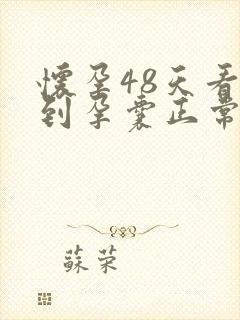 懷孕48天看
到孕囊正常
蘇荣